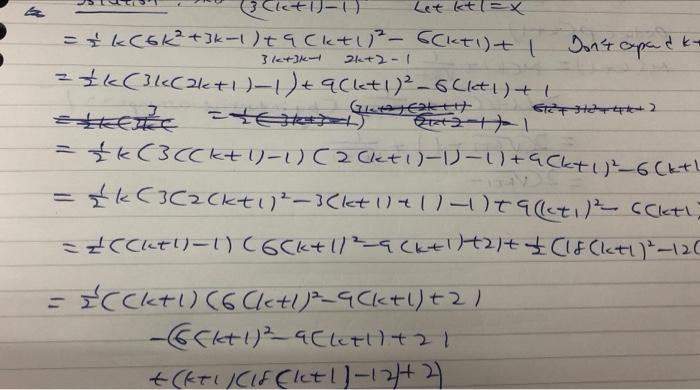 (3(k+1)-1) Let k+1=x
= ½ k(6k²+3k-1)+9(k+1)²-6(k+1)+1 Don't expand k+
3k+3k-1 2k+2-1
= ½ k(3k(2k+1)-1)+9(k+1)²-6(k+1)+1
= ½ k(3((k+1)-1)(2(k+1)-1)-1)+9(k+1)²-6(k+1
= ½ k(3(2(k+1)²-3(k+1)+1)-1)+9(k+1)²-6(k+1)
= ½((k+1)-1)(6(k+1)²-9(k+1)+2)+½(18(k+1)²-12(
= ½((k+1)(6(k+1)²-9(k+1)+2)
-(6(k+1)²-9(k+1)+2)
+(k+1)(18(k+1)-12)+2)